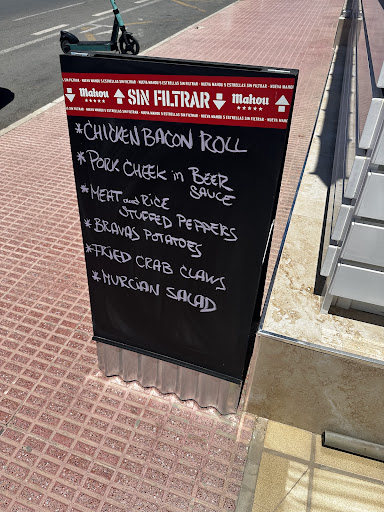 NUEVA MAHOU 5 ESTRELLAS SIN FILTRAR • NUEVA MAHOU 5 ESTRELLAS SIN FILTRAR • NUEVA MAHOU
Mahou SIN FILTRAR Mahou
*CHICKEN BACON ROLL
*PORK CHEEK in BEER
SAUCE
*MEAT and RICE
STUFFED PEPPERS
*BRAVAS POTATOES
*FRIED CRAB CLAWS
*MURCIAN SALAD